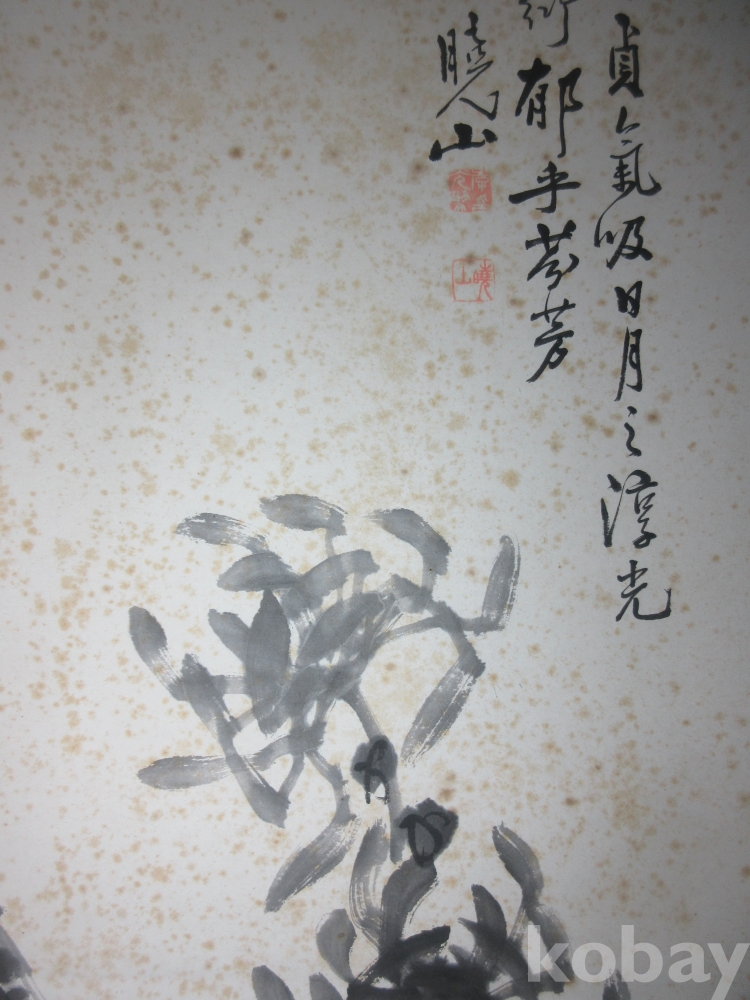 貞氣吸日月之淳光
郁乎芬芳
曉山
曉山
kobay